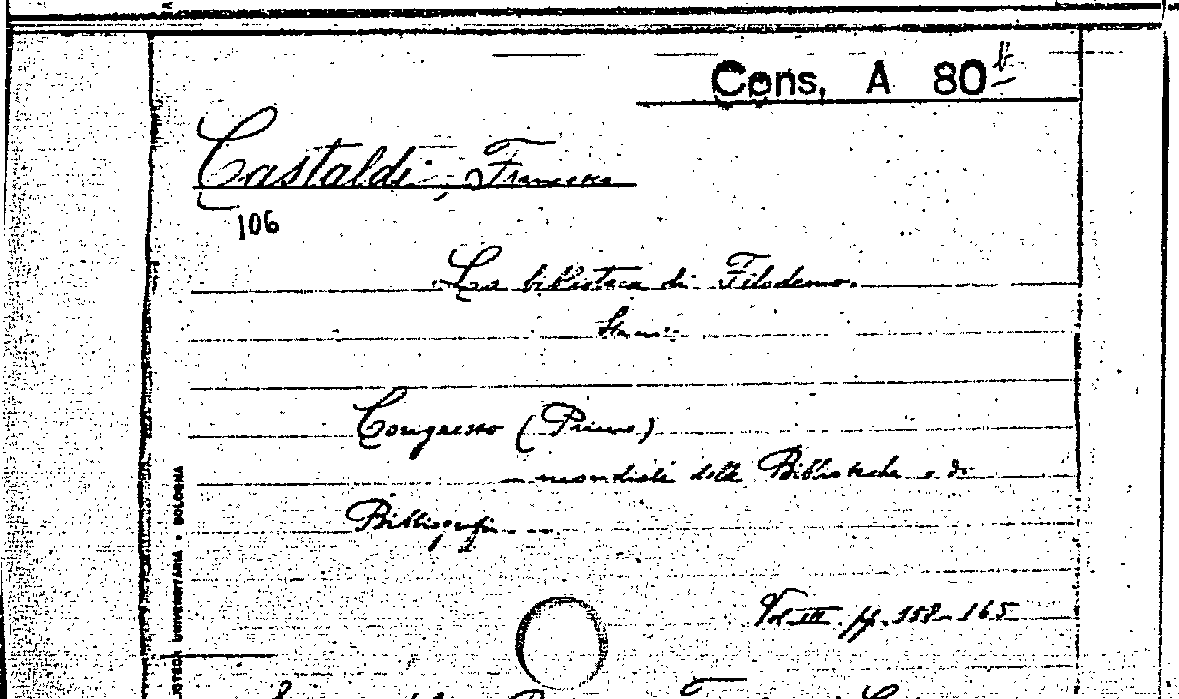 Cons, A 80 b
Castaldi, Francesco
106
La biblioteca di Filodemo.
Congresso (Primo)
mondiale delle Biblioteche e di
Bibliografia
Vol III pp. 158-165
BIBLIOTECA UNIVERSITARIA - BOLOGNA